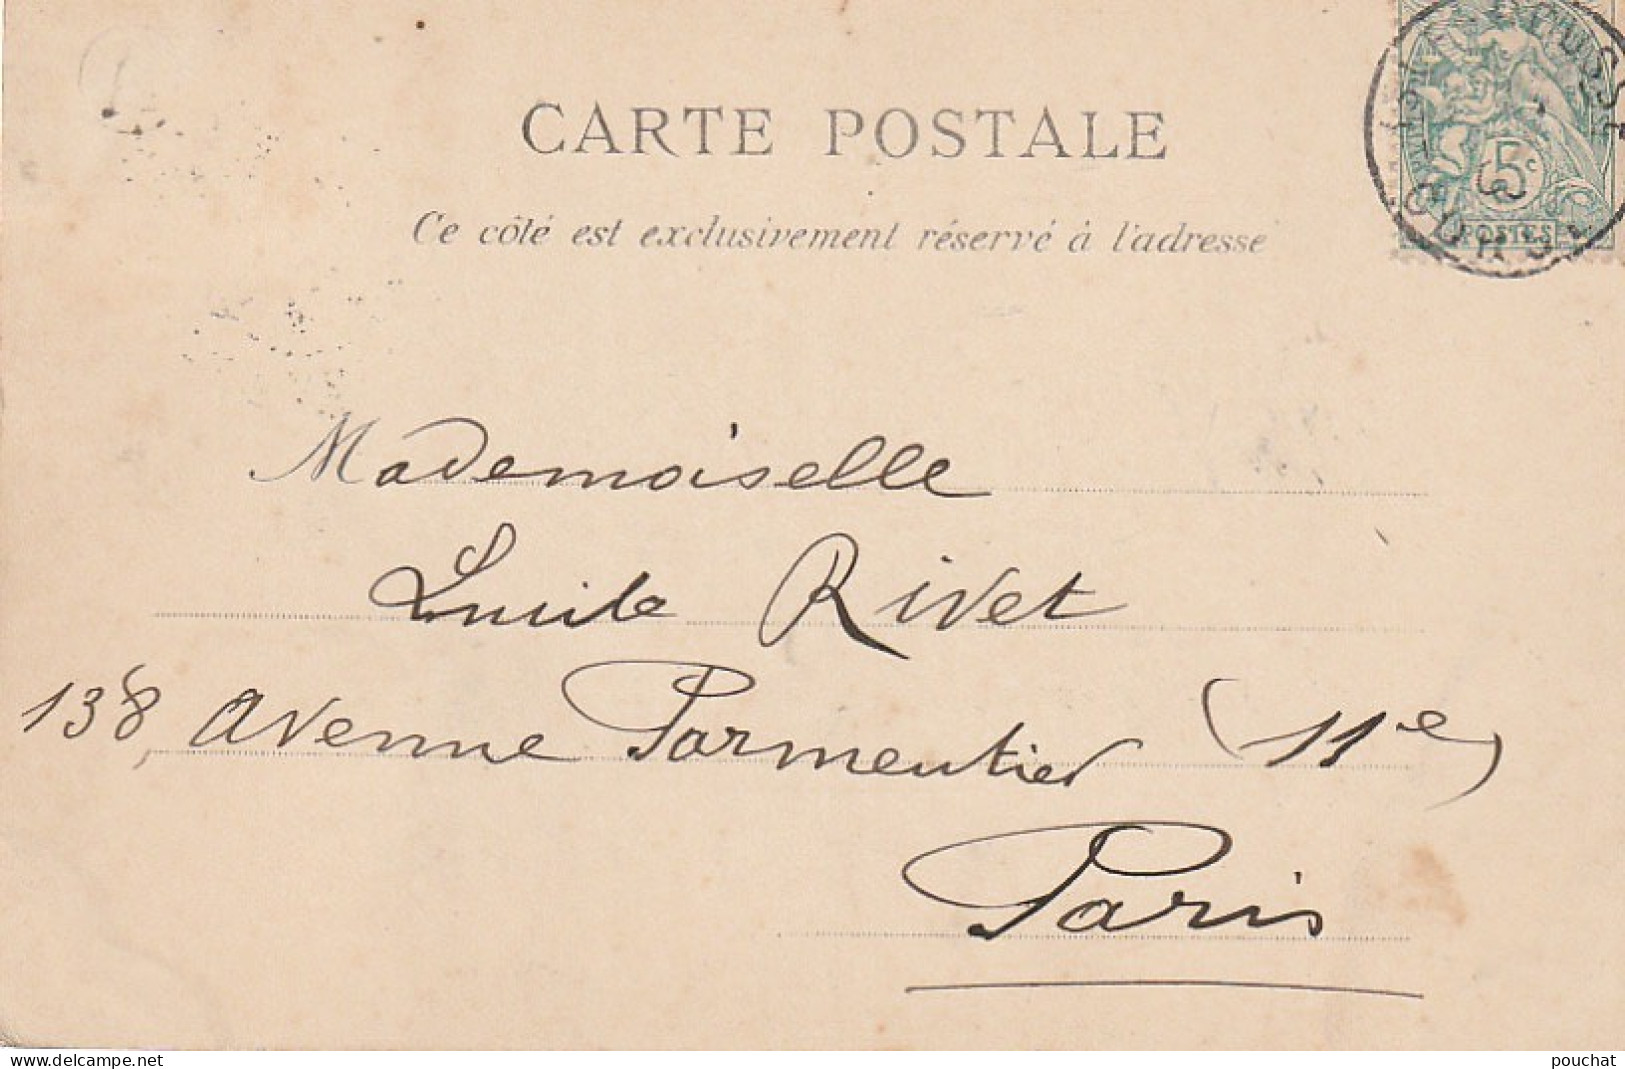 CARTE POSTALE
Ce côté est exclusivement réservé à l'adresse
5c
POSTES
Mademoiselle
Lucile Rivet
138, Avenue Parmentier (11e)
Paris
www.delcampe.net
pouchat